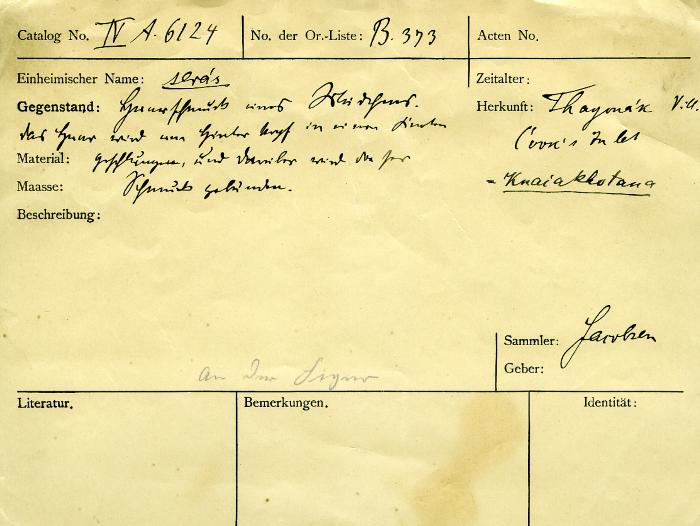 Catalog No. IV A. 6124 No. der Or.-Liste: B. 373 Acten No.
Einheimischer Name: serás
Zeitalter:
Gegenstand: Haarschmuck eines Mädchens.
Herkunft: Thayonák Vill.
das Haar wird am Hinterkopf in einen Knoten
Cook's Inlet
Material: geschlungen, und darüber wird dieser
= Knaiakhotana
Maasse: Schmuck gebunden.
Beschreibung:
Sammler: Jacobsen
Geber:
an der Figur
Literatur.
Bemerkungen.
Identität: